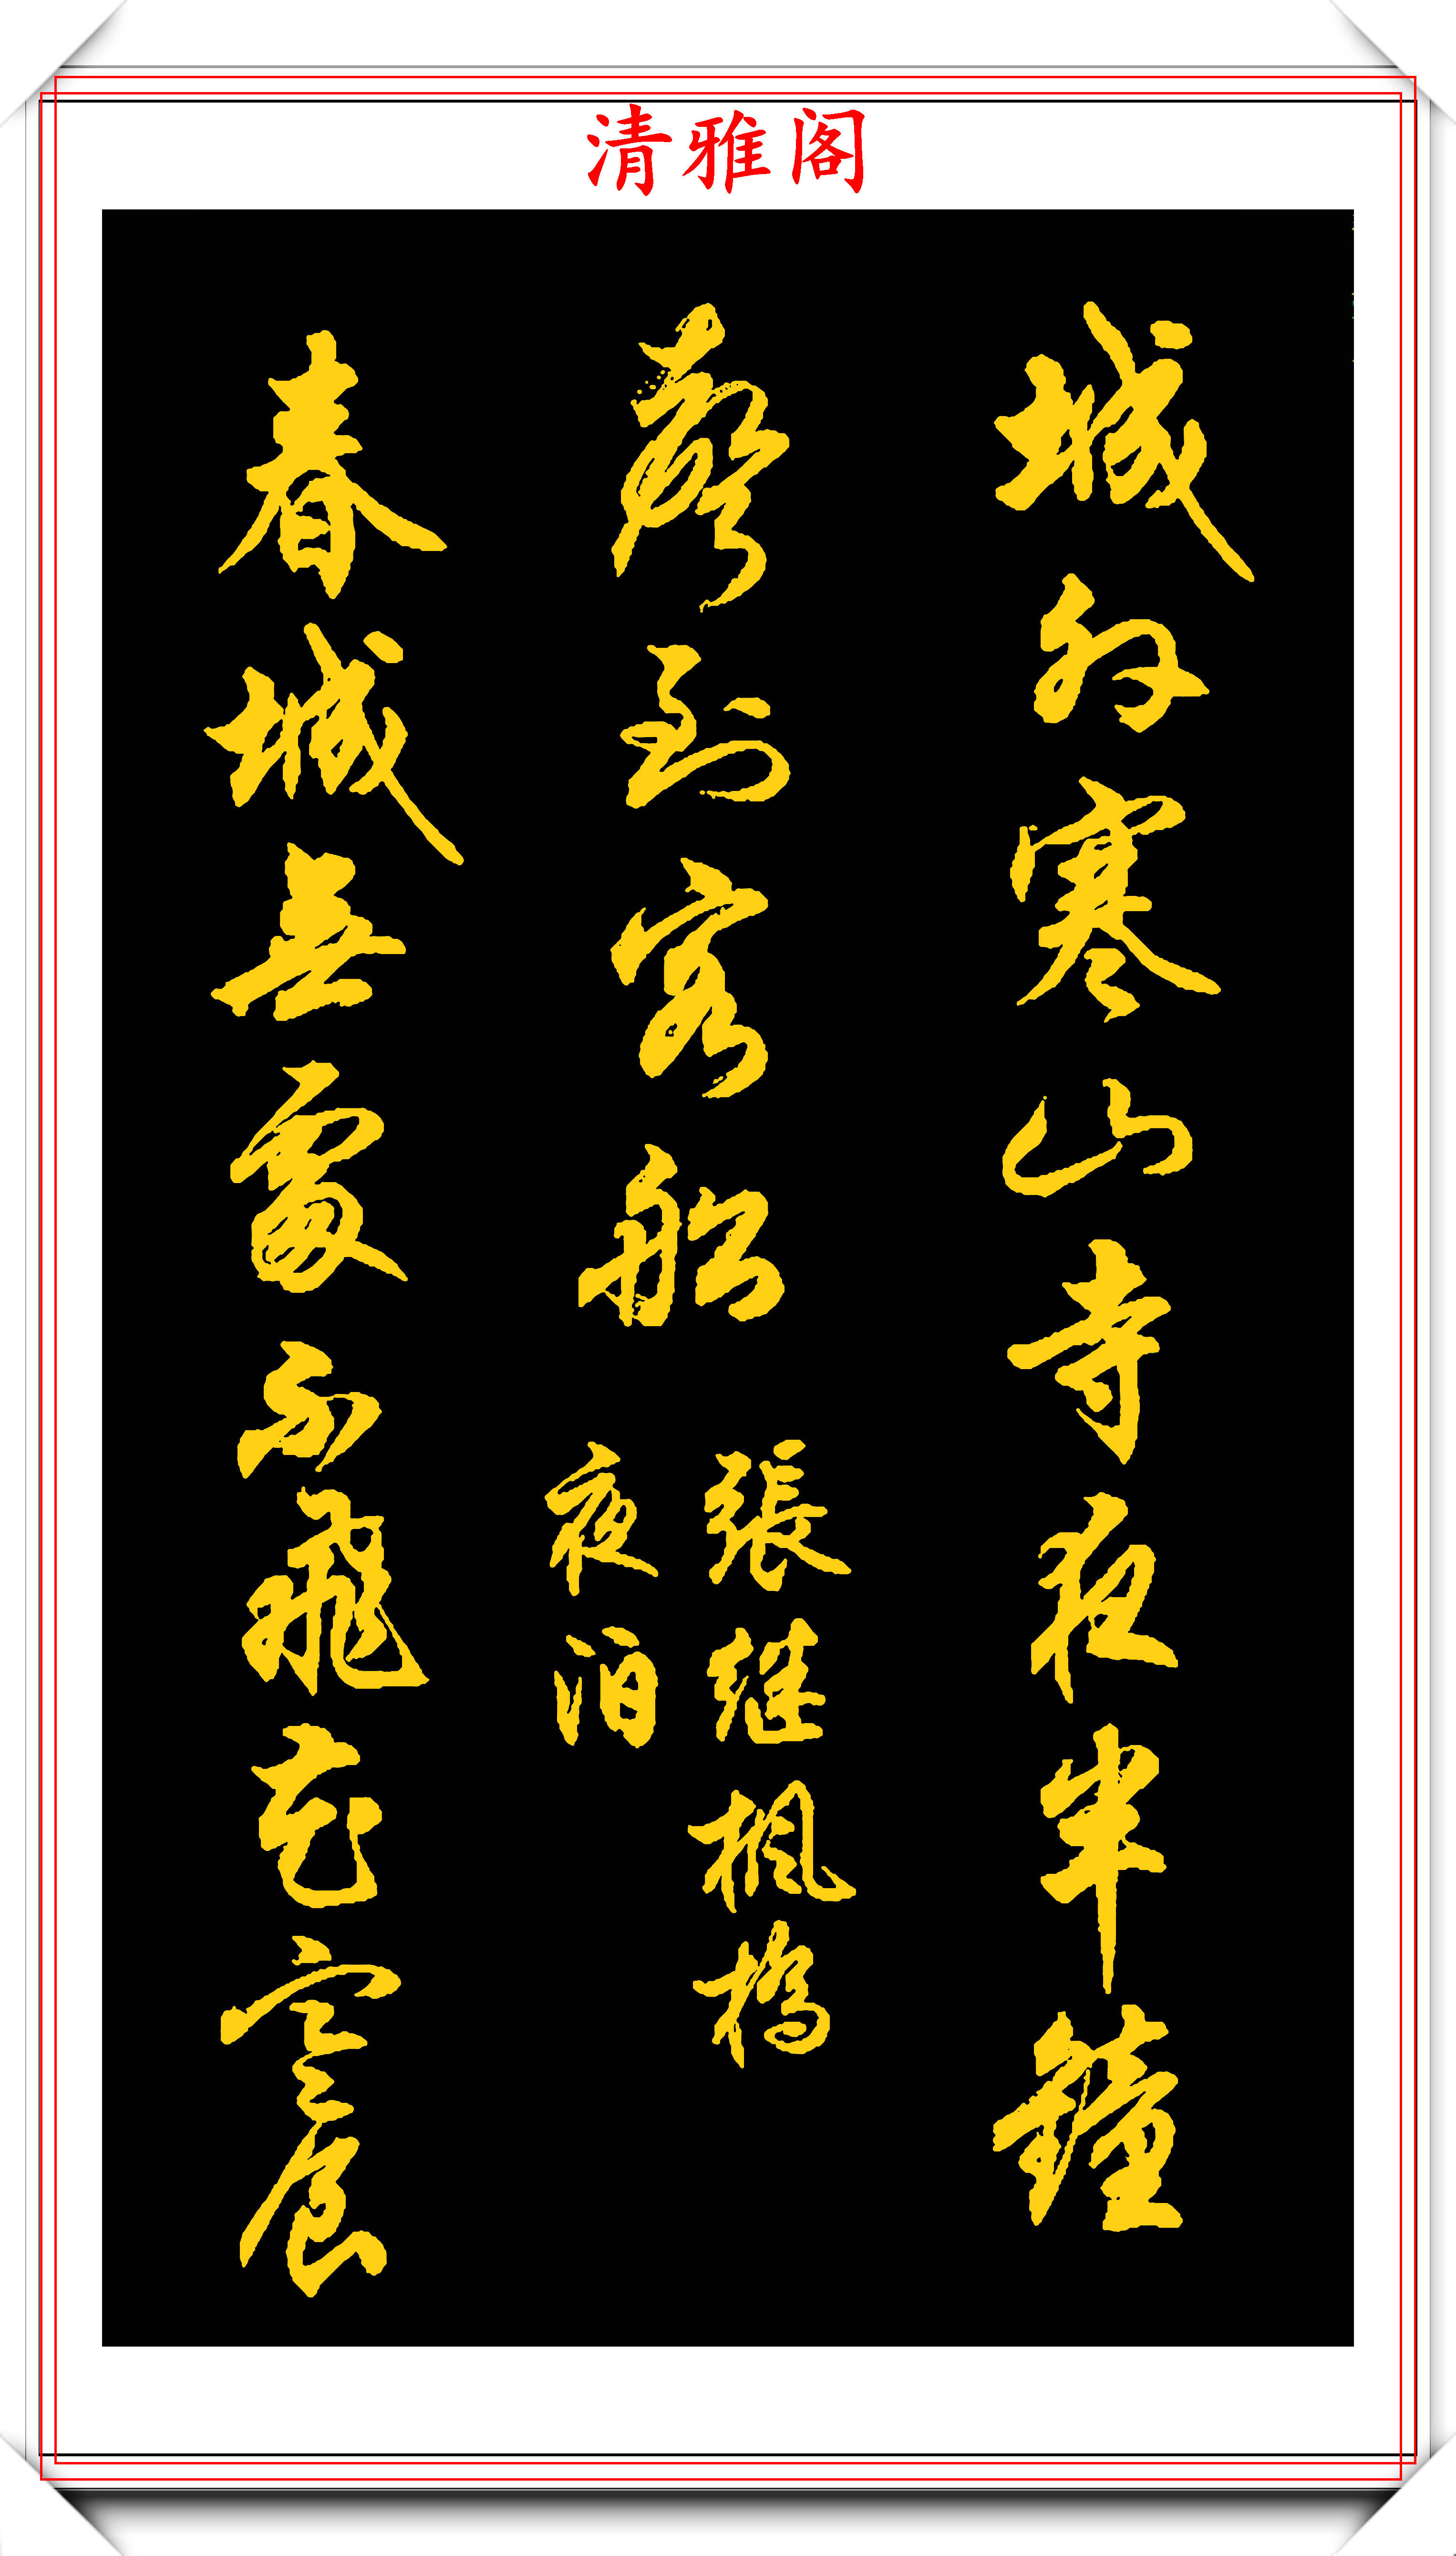 清雅阁
城外寒山寺夜半鐘
聲到客船
張继楓橋
夜泊
春城無處不飛花寒食